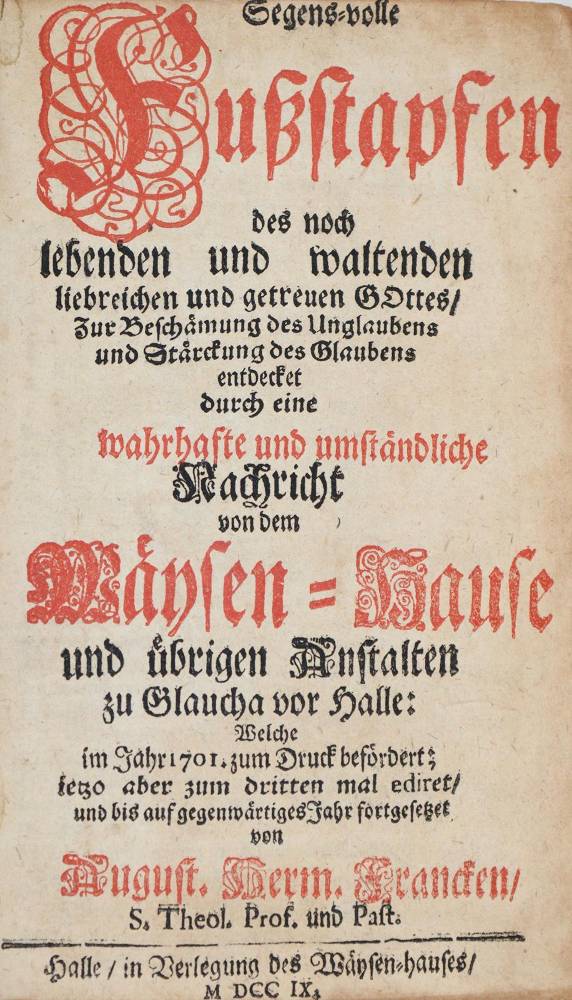 Segens-volle
Fußstapfen
des noch
lebenden und waltenden
liebreichen und getreuen GOttes/
Zur Beschämung des Unglaubens
und Stärckung des Glaubens
entdecket
durch eine
wahrhafte und umständliche
Nachricht
von dem
Wäysen-Hause
und übrigen Anstalten
zu Glaucha vor Halle:
Welche
im Jahr 1701. zum Druck befördert;
ietzo aber zum dritten mal ediret/
und bis auf gegenwärtiges Jahr fortgesetzet
von
August. Herm. Francken/
S. Theol. Prof. und Past.
Halle / in Verlegung des Wäysen-hauses/
M DCC IX.